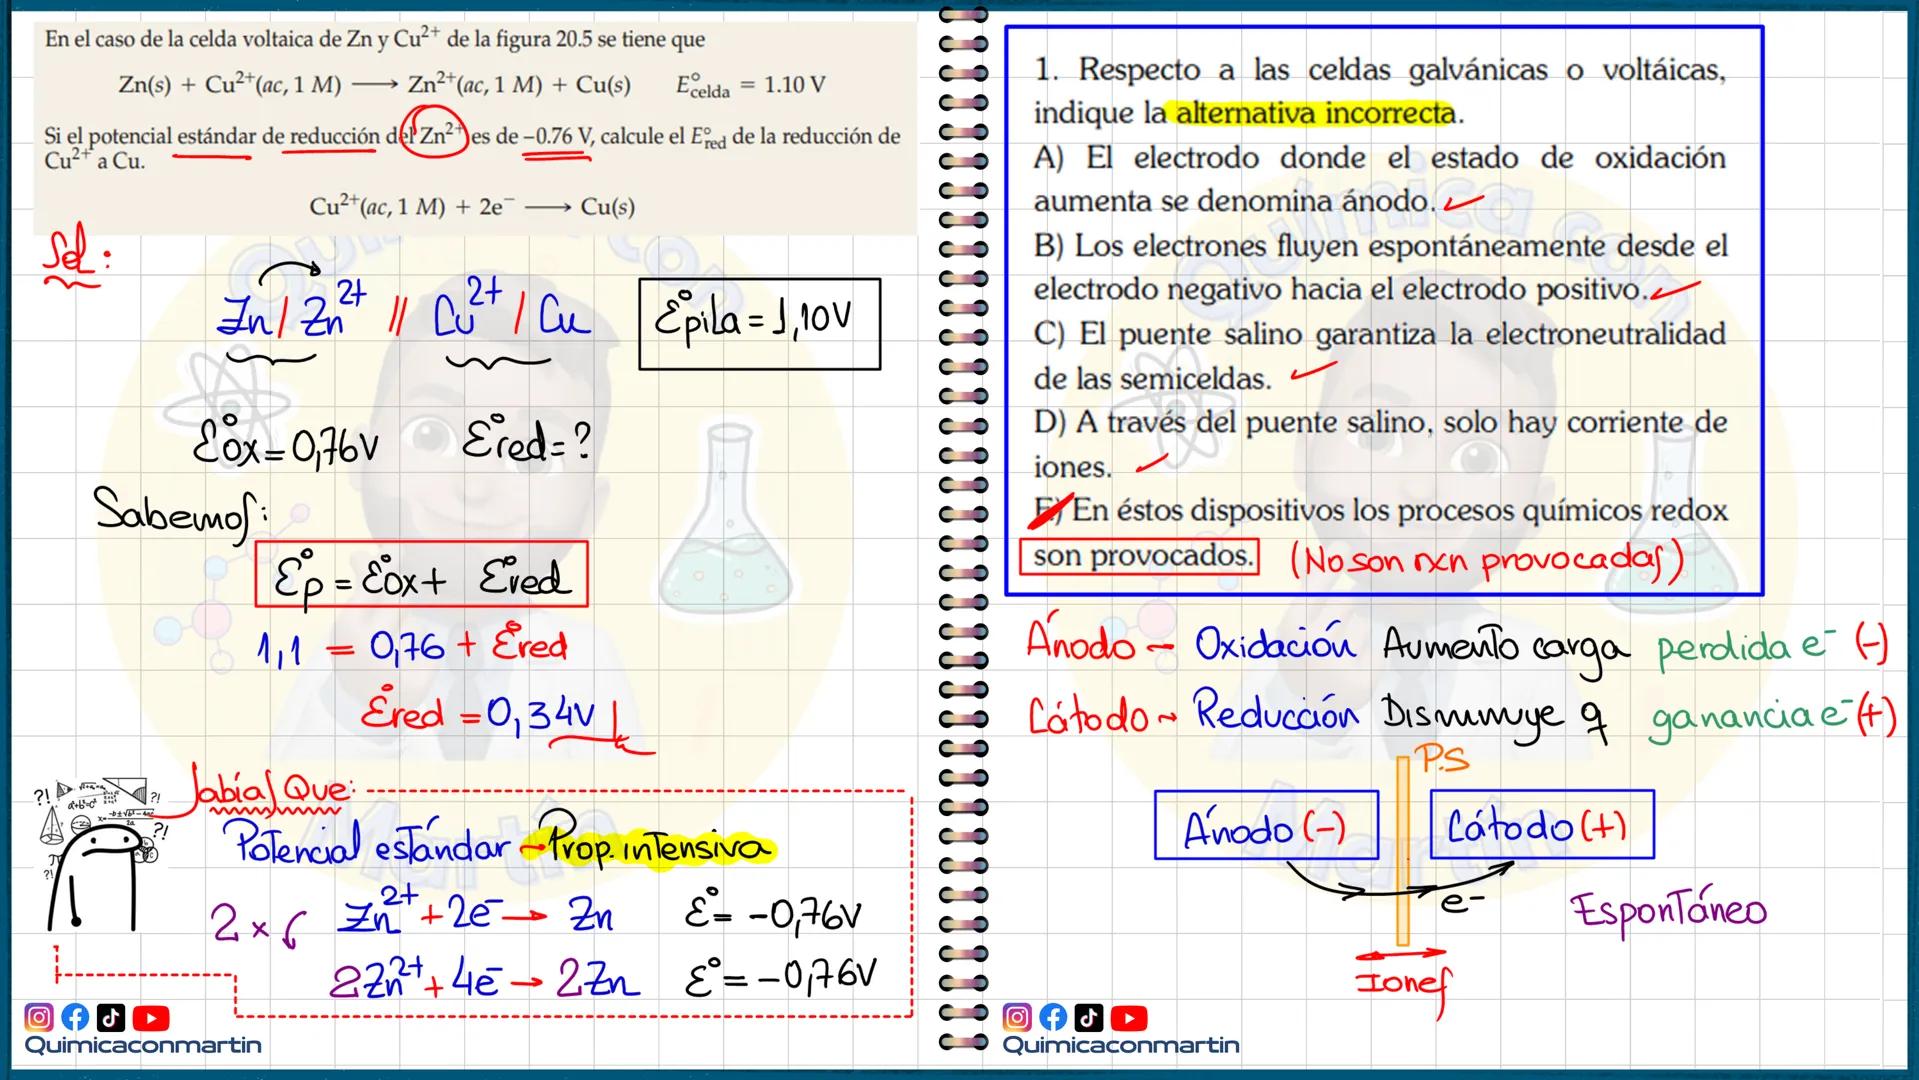 En el caso de la celda voltaica de Zn y Cu²⁺ de la figura 20.5 se tiene que
Zn(s) + Cu²⁺(ac, 1 M) ⟶ Zn²⁺(ac, 1 M) + Cu(s) E°celda = 1.10 V
Si el potencial estándar de reducción del Zn²⁺ es de −0.76 V, calcule el E°red de la reducción de
Cu²⁺ a Cu.
Cu²⁺(ac, 1 M) + 2e⁻ ⟶ Cu(s)
Sol:
Zn / Zn²⁺ // Cu²⁺ / Cu
E°pila = 1,10V
E°ox = 0,76V E°red = ?
Sabemos:
E°p = E°ox + E°red
1,1 = 0,76 + E°red
E°red = 0,34V
Sabías Que:
Potencial estándar → Prop. intensiva
2 × Zn²⁺ + 2e⁻ → Zn E° = -0,76V
2Zn²⁺ + 4e⁻ → 2Zn E° = -0,76V
Quimicaconmartin
1. Respecto a las celdas galvánicas o voltáicas,
indique la alternativa incorrecta.
A) El electrodo donde el estado de oxidación
aumenta se denomina ánodo.
B) Los electrones fluyen espontáneamente desde el
electrodo negativo hacia el electrodo positivo.
C) El puente salino garantiza la electroneutralidad
de las semiceldas.
D) A través del puente salino, solo hay corriente de
iones.
E) En éstos dispositivos los procesos químicos redox
son provocados. (No son rxn provocadas)
Ánodo → Oxidación Aumento carga perdida e⁻ (-)
Cátodo → Reducción Disminuye q ganancia e⁻ (+)
P.S
Ánodo (-) Cátodo (+)
e-
Espontáneo
Iones
Quimicaconmartin
Química con
Martin
Química con
Martin